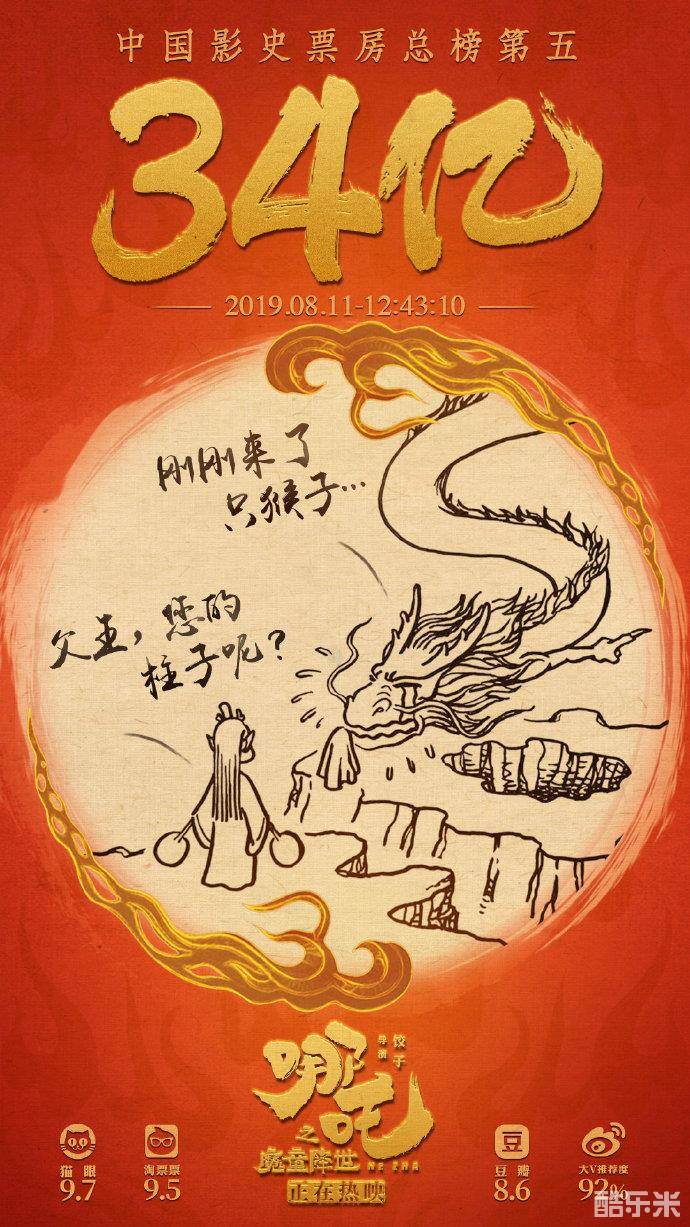 中国影史票房总榜第五
34亿
2019.08.11-12:43:10
刚刚来了
只猴子...
父王，您的
柱子呢？
哪吒
导演
饺子
之
魔童降世
NE ZHA
正在热映
猫眼
9.7
淘票票
9.5
豆
豆瓣
8.6
大V推荐度
92%
酷乐米